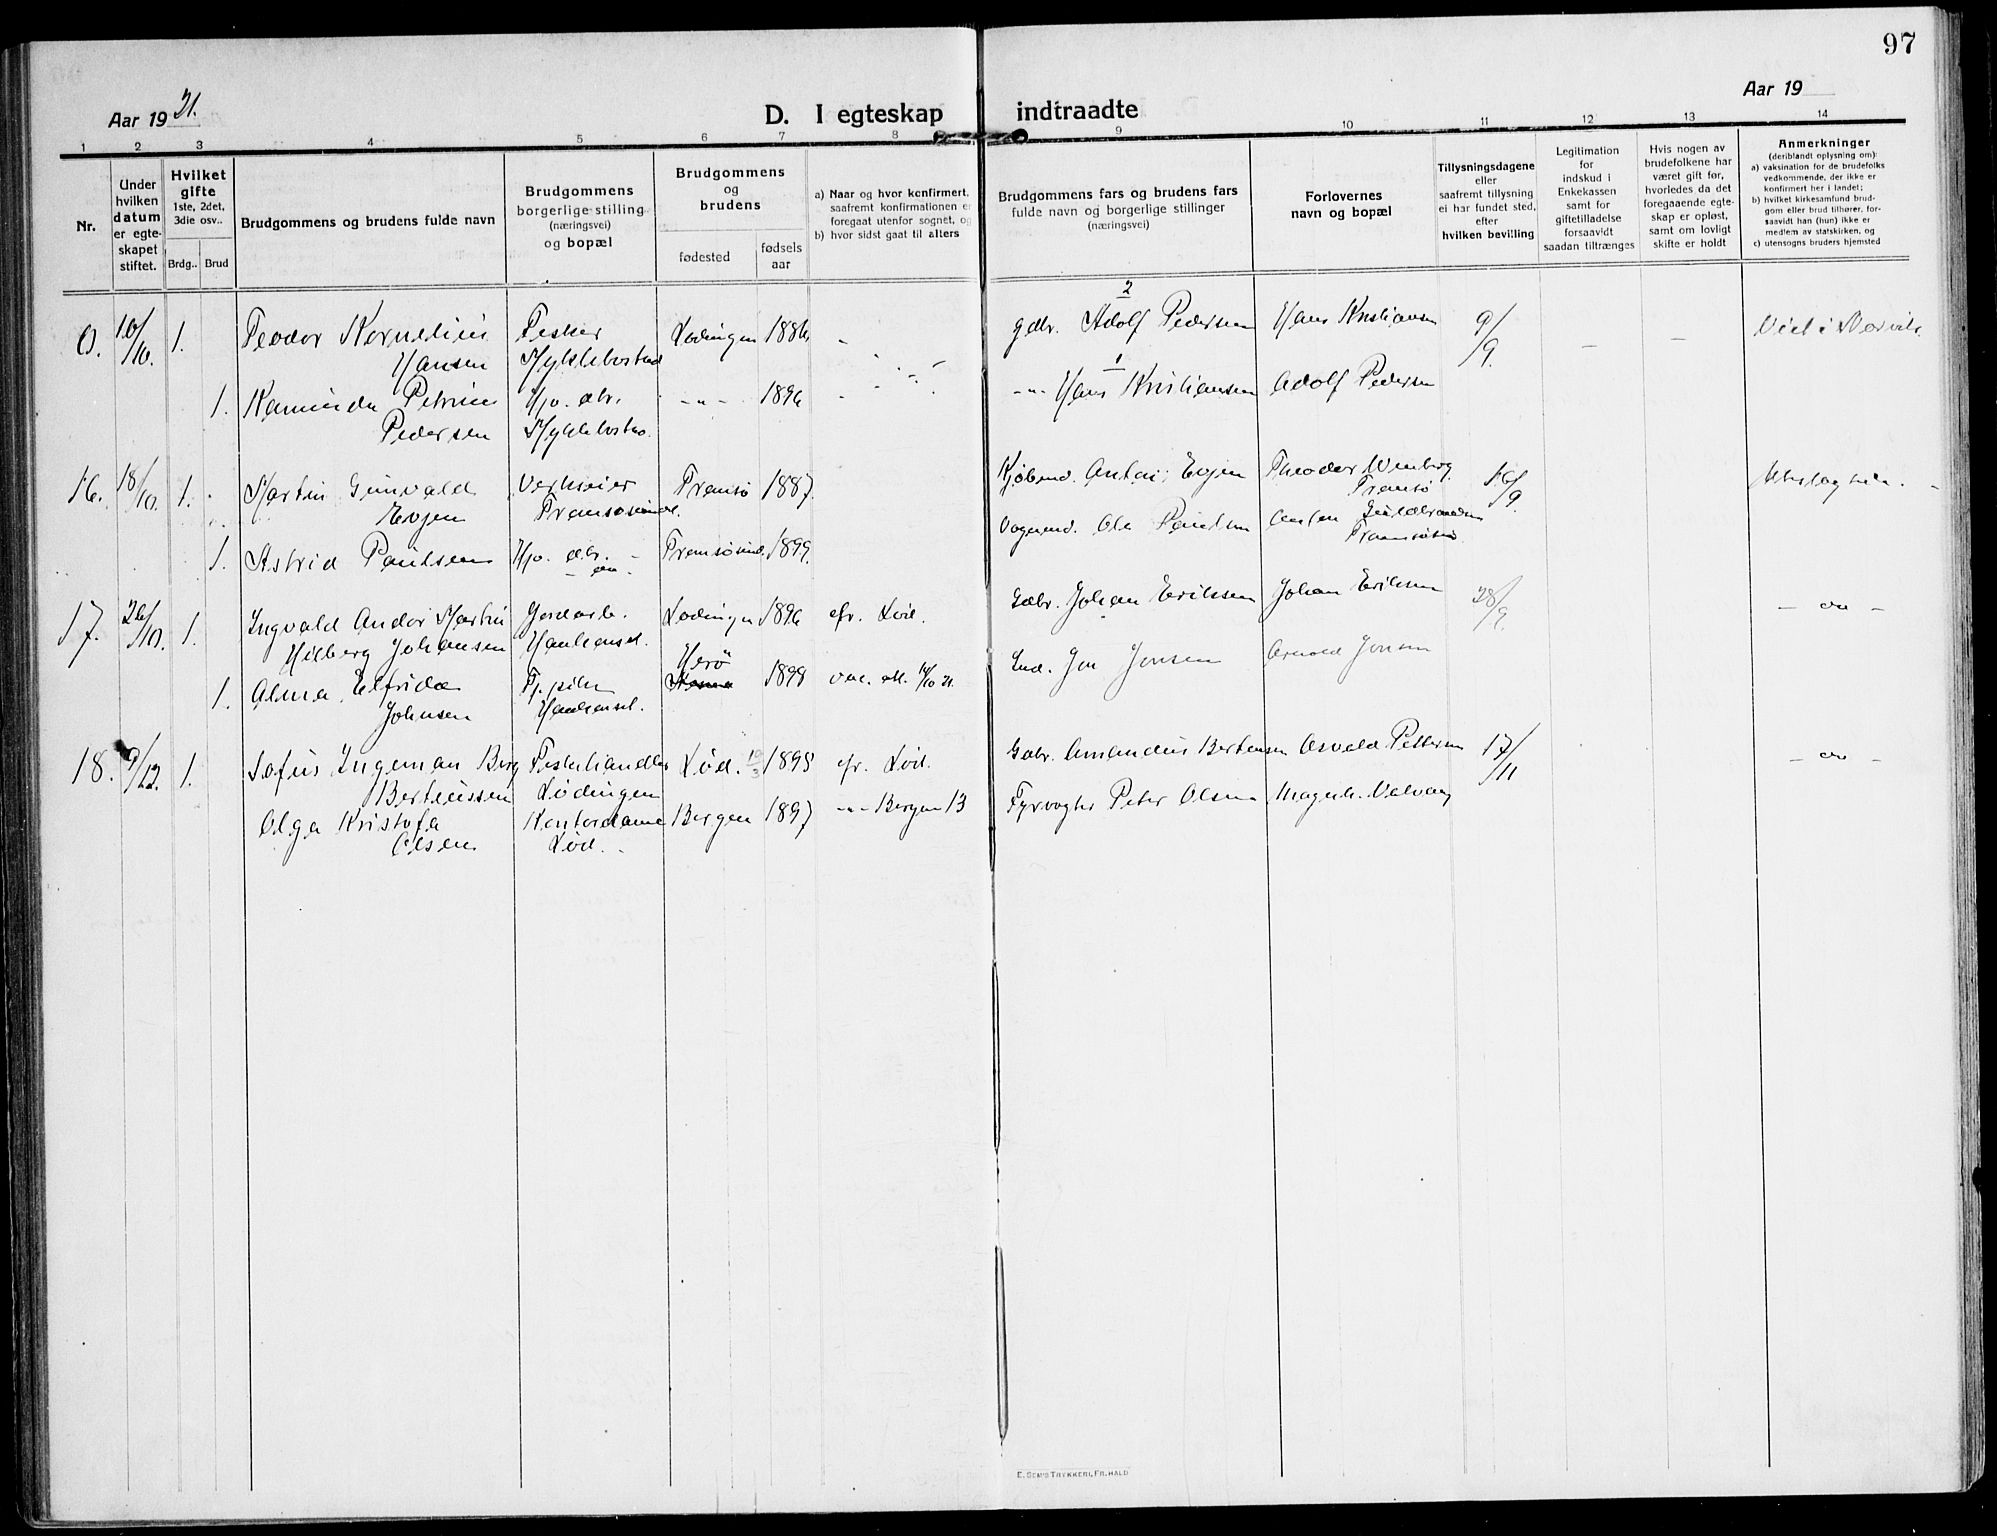 97
Aar 19 21.
D. I egteskap indtraadte
Aar 19
1 2 3 4 5 6 7 8 9 10 11 12 13 14
Nr.
Under hvilken datum er egteskapet stiftet.
Hvilket gifte 1ste, 2det, 3die osv..
Brdg.. Brud
Brudgommens og brudens fulde navn
Brudgommens borgerlige stilling (næringsvei) og bopæl
Brudgommens og brudens
fødested
fødsels aar
a) Naar og hvor konfirmert, saafremt konfirmationen er foregaat utenfor sognet, og
b) hvor sidst gaat til alters
Brudgommens fars og brudens fars fulde navn og borgerlige stillinger (næringsvei)
Forlovernes navn og bopæl
Tillysningsdagene eller saafremt tillysning ei har fundet sted, efter hvilken bevilling
Legitimation for indskud i Enkekassen samt for giftetilladelse forsaavidt saadan tiltrænges
Hvis nogen av brudefolkene har været gift før, hvorledes da det foregaaende egteskap er opløst, samt om lovligt skifte er holdt
Anmerkninger
(deriblandt oplysning om):
a) vaksination for de brudefolks vedkommende, der ikke er konfirmert her i landet;
b) hvilket kirkesamfund brudgom eller brud tilhører, forsaavidt han (hun) ikke er medlem av statskirken, og
c) utensogns bruders hjemsted
0. 10/10. 1. Teodor Kornelius Fisker Lødingen 1886 - gdbr. 2 Adolf Pedersen Hans Kristiansen 9/9. - - Viet i Narvik.
Hansen Myklebostad
1. Kaminda Petrine Hjv. dtr. -"- 1896 - -"- 1 Hans Kristiansen Adolf Pedersen
Pedersen Myklebostad.
16. 18/10. 1. Martin Gunvald Verkseier Tromsø 1887. Kjøbmd. Anton Evjen Theodor Wenberg Tromsø 16/9.
Evjen Tromsøsund.
1. Astrid Paulsen Hjv. dtr. - Tromsøsund. 1899. Ole Paulsen
17. 26/10. 1. Ingvald Andor Martin Jordarb. Lødingen 1896 efr. Lød. Gdbr. Johan Eriksen Johan Eriksen 28/9. - do -
Hilberg Johansen
Herø
1. Alma Elfrida 1898 vac. att. 14/10 21. Jon Jonsen Arnold Jonsen
Johnsen
18. 9/12. 1. Sofus Ingeman Berg Fiskehandler Lød. 19/3 1895 efr. Lød. Gdbr. Amandus Bertensen Osvald Pettersen 17/11 - do -
Berteussen Lødingen
Olga Kristofa Kontordame Bergen 1897 -"- Bergen 13 Fyrvogter Peter Olsen Magnh. Valvaag
Olsen Lød.
E. SEM'S TRYKKERI, FR. HALD